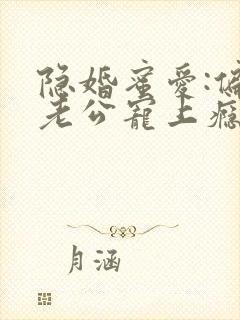 隐婚蜜爱:偏
老公宠上瘾
月涵